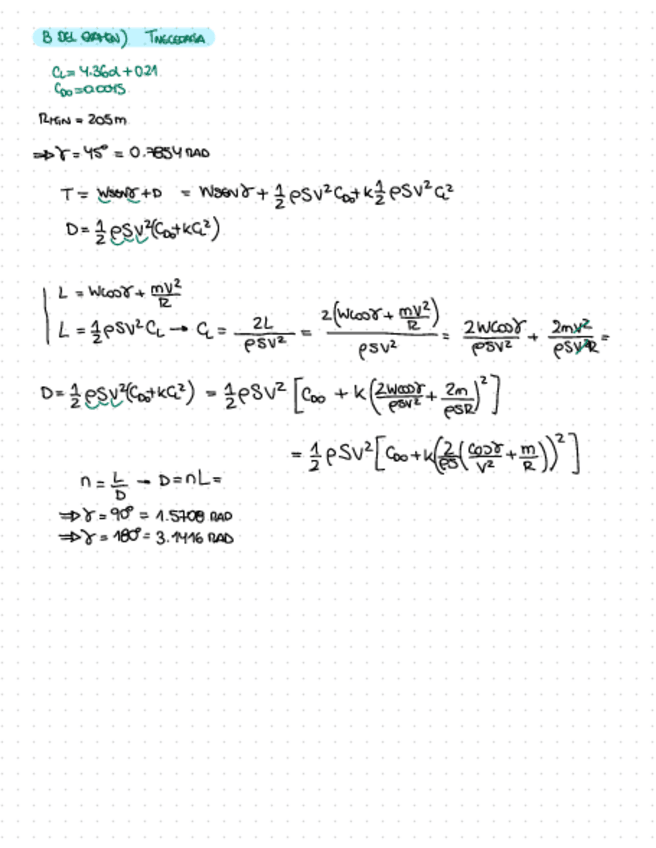 B DEL EXAMEN) TNECESARIA
CL = 4.36α + 0.21
CD0 = 0.0015
RMIN = 205m
⇒ γ = 45° = 0.7854 RAD
T = Wsenγ + D = Wsenγ + 1/2 ρSV² CD0 + k 1/2 ρSV² CL²
D = 1/2 ρSV² (CD0 + kCL²)
L = Wcosγ + mV²/R
L = 1/2 ρSV² CL → CL = 2L/ρSV² = 2(Wcosγ + mV²/R)/ρSV² = 2Wcosγ/ρSV² + 2mV²/ρSV²R =
D = 1/2 ρSV² (CD0 + kCL²) = 1/2 ρSV² [CD0 + k(2Wcosγ/ρSV² + 2m/ρSR)²]
= 1/2 ρSV² [CD0 + k(2/ρS (cosγ/V² + m/R))²]
n = L/D → D = nL =
⇒ γ = 90° = 1.5708 RAD
⇒ γ = 180° = 3.1416 RAD